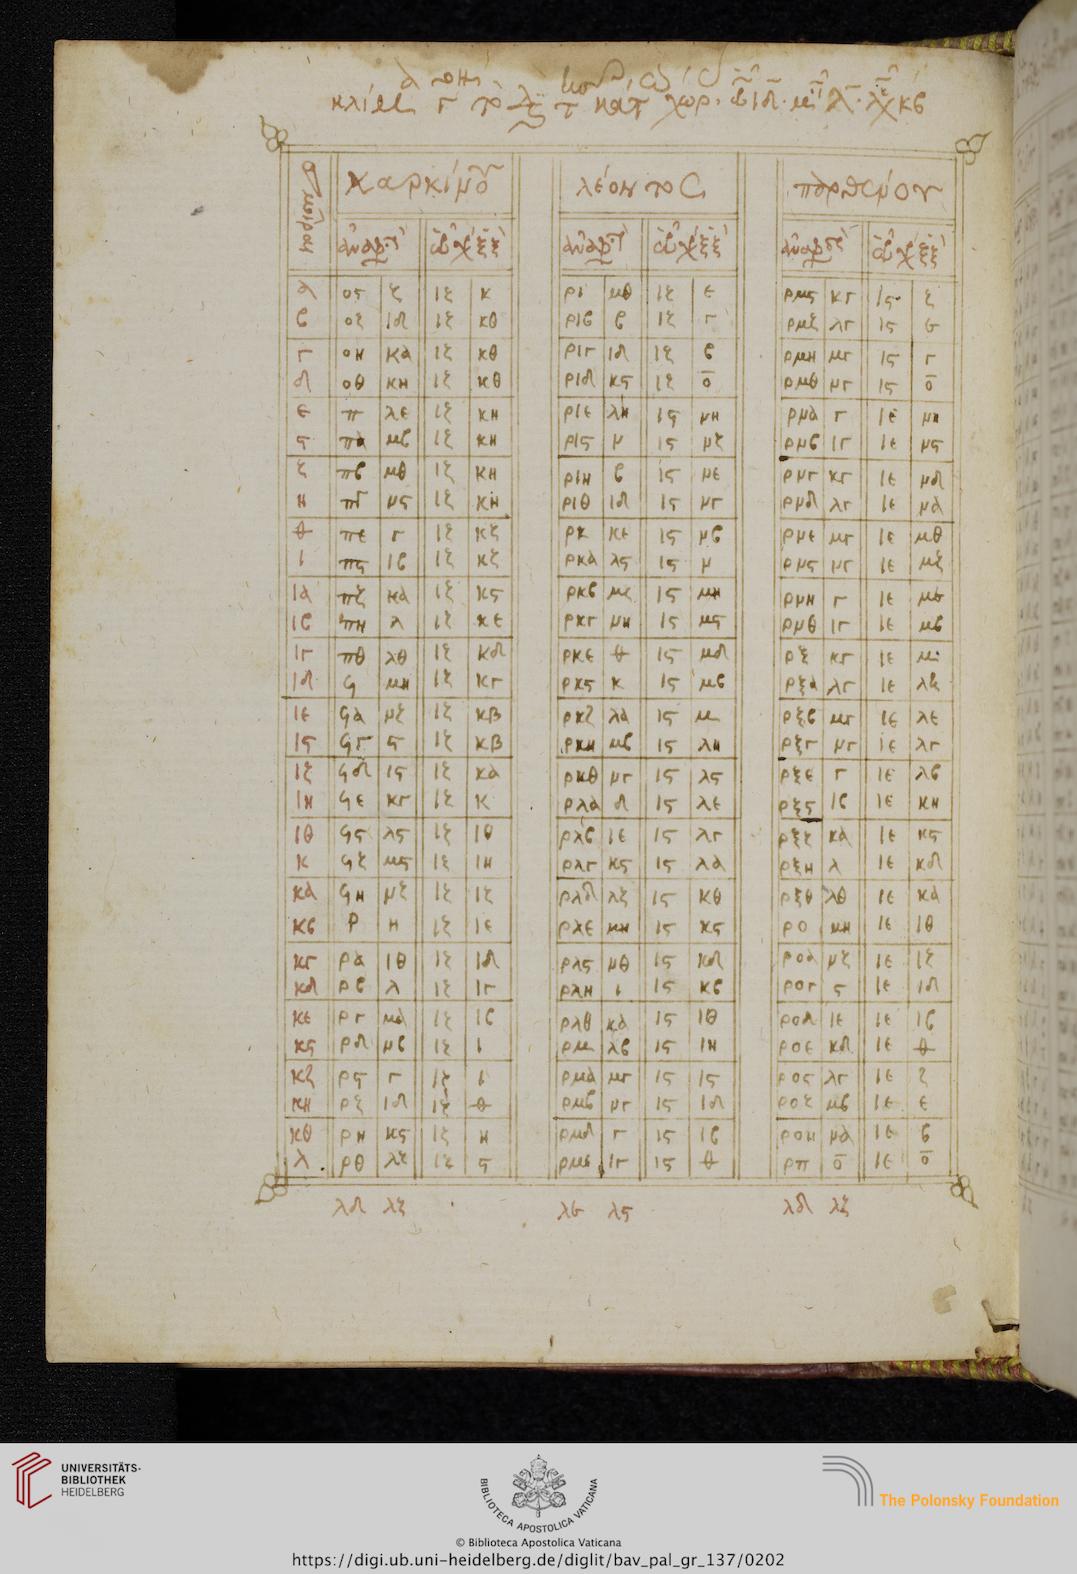 λέοντος
α ος ζ ιζ κ ρι μθ ιζ ε ρμς κγ ις ζ
β οζ ιδ ιζ κθ ριβ β ιζ γ ρμζ λγ ις
γ οη κα ιζ κθ ριγ ιδ ιζ β ρμη μγ ις γ
δ οθ κη ιζ κθ ριδ κς ιζ ο ρμθ μγ ις ο
ε π λε ιζ κη ριε λη ις μη ρμα γ ιε μη
ς πα μβ ιζ κη ρις μ ις μζ ρμβ ιγ ιε μς
ζ πβ μθ ιζ κη ριη β ις με ρμγ κγ ιε μδ
η πγ μς ιζ κη ριθ ιδ ις μγ ρμδ λγ ιε μα
θ πε γ ιζ κζ ρκ κε ις μβ ρμε μγ ιε μθ
ι πς ιβ ιζ κζ ρκα λς ις μ ρμς μγ ιε μζ
ια πζ κα ιζ κς ρκβ μζ ις μη ρμη γ ιε
ιβ πη λ ιζ κε ρκγ μη ις μς ρμθ ιγ ιε μβ
ιγ πθ λθ ιζ κδ ρκε θ ις μδ ρξ κγ ιε μ
ιδ ϟ μη ιζ κγ ρκς κ ις μβ ρξα λγ ιε
ιε ϟα μζ ιζ κβ ρκζ λα ις μ ρξβ μγ ιε λε
ις ϟγ ς ιζ κβ ρκη μβ ις λη ρξγ μγ ιε λγ
ιζ ϟδ ις ιζ κα ρκθ μγ ις λς ρξε γ ιε λβ
ιη ϟε κγ ιζ κ ρλα δ ις λε ρξς ιβ ιε κη
ιθ ϟς λς ιζ ιθ ρλβ ιε ις λγ ρξζ κα ιε κς
κ ϟζ μς ιζ ιη ρλγ κς ις λα ρξη λ ιε κδ
κα ϟη μζ ιζ ιζ ρλδ λζ ις κθ ρξθ λθ ιε κα
κβ ρ η ιζ ιε ρλε μη ις κς ρο μη ιε ιθ
κγ ρα ιθ ιζ ιδ ρλς μθ ις κδ ροα μζ ιε ιζ
κδ ρβ λ ιζ ιγ ρλη ι ις κβ ρογ ς ιε ιδ
κε ργ μα ιζ ιβ ρλθ κα ις ιθ ροδ ιε ιε ιβ
κς ρδ μβ ιζ ι ρμ λβ ις ιη ροε κδ ιε θ
κζ ρς γ ιζ ι ρμα μγ ις ις ρος λγ ιε ζ
κη ρζ ιδ ιζ θ ρμβ μγ ις ιδ ροζ μβ ιε ε
κθ ρη κς ιζ η ρμδ γ ις ιβ ροη μα ιε β
λ ρθ λζ ιζ ς ρμε ιγ ις θ ρπ ο ιε ο
λδ λζ λς λδ λζ
UNIVERSITÄTS-
BIBLIOTHEK
HEIDELBERG
BIBLIOTECA APOSTOLICA VATICANA
The Polonsky Foundation
© Biblioteca Apostolica Vaticana
https://digi.ub.uni-heidelberg.de/diglit/bav_pal_gr_137/0202